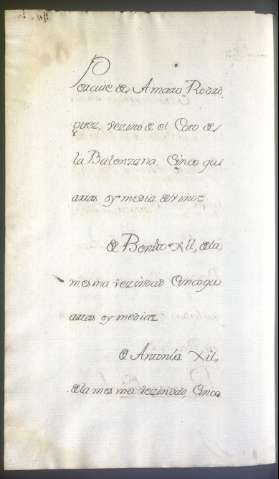 Percive de Amaro Rodri
guez, vecino de el Coto de
la Batonzana, Cinco qu
artas y media de vino=
de Benito Xil, de la
mesma vecindad Cinco qu
artas y media=
de Antonia Xil,
de la mesma vecindad, Cinco